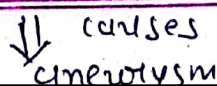 causes
aneurysm